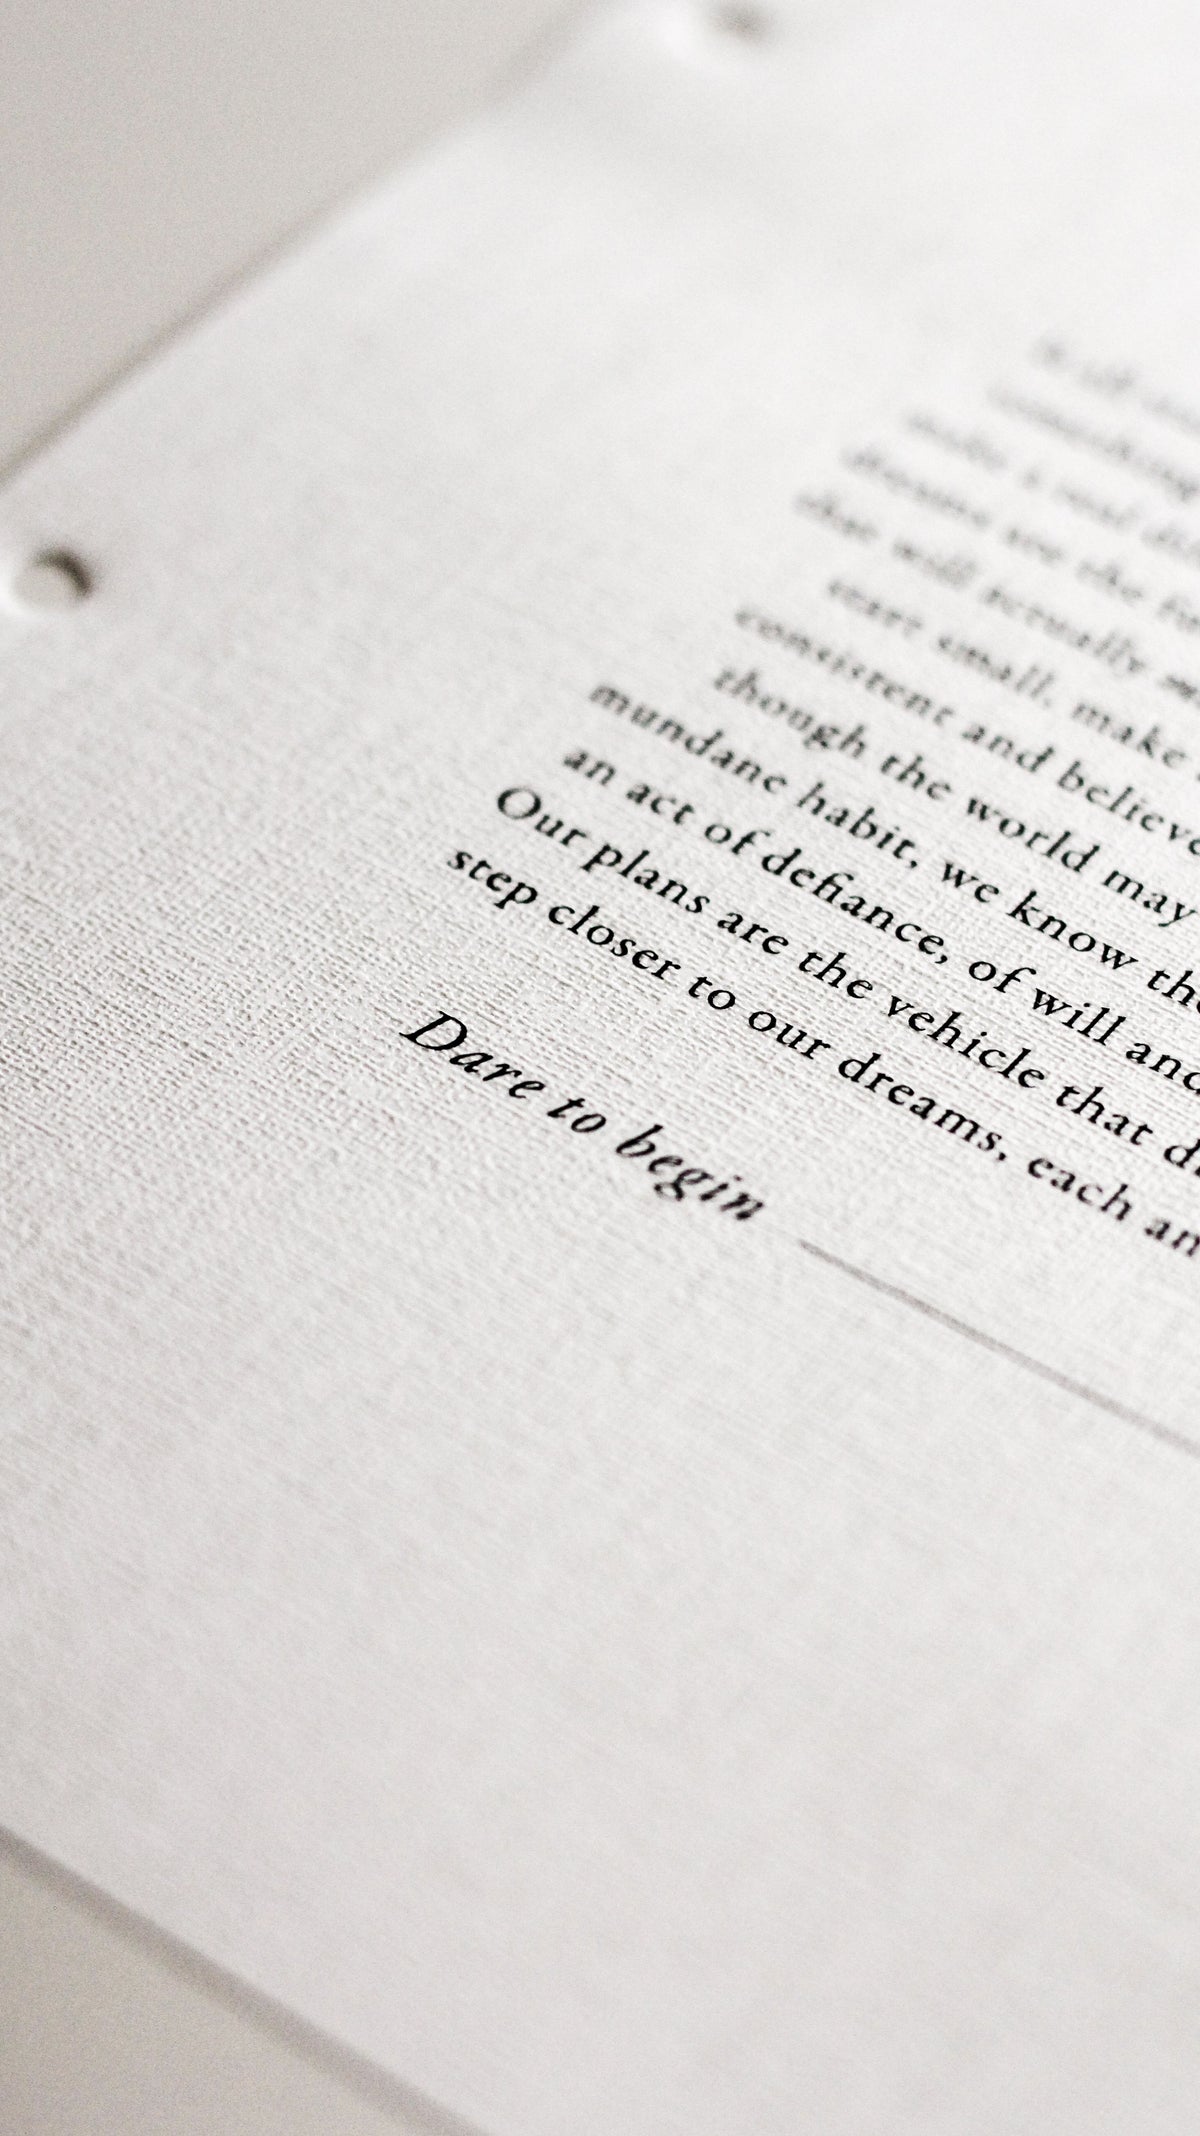 make a real
dreams are the
that will actually
start small, make
consistent and believe
though the world may
mundane habit, we know
an act of defiance, of will and
Our plans are the vehicle that
step closer to our dreams, each
Dare to begin